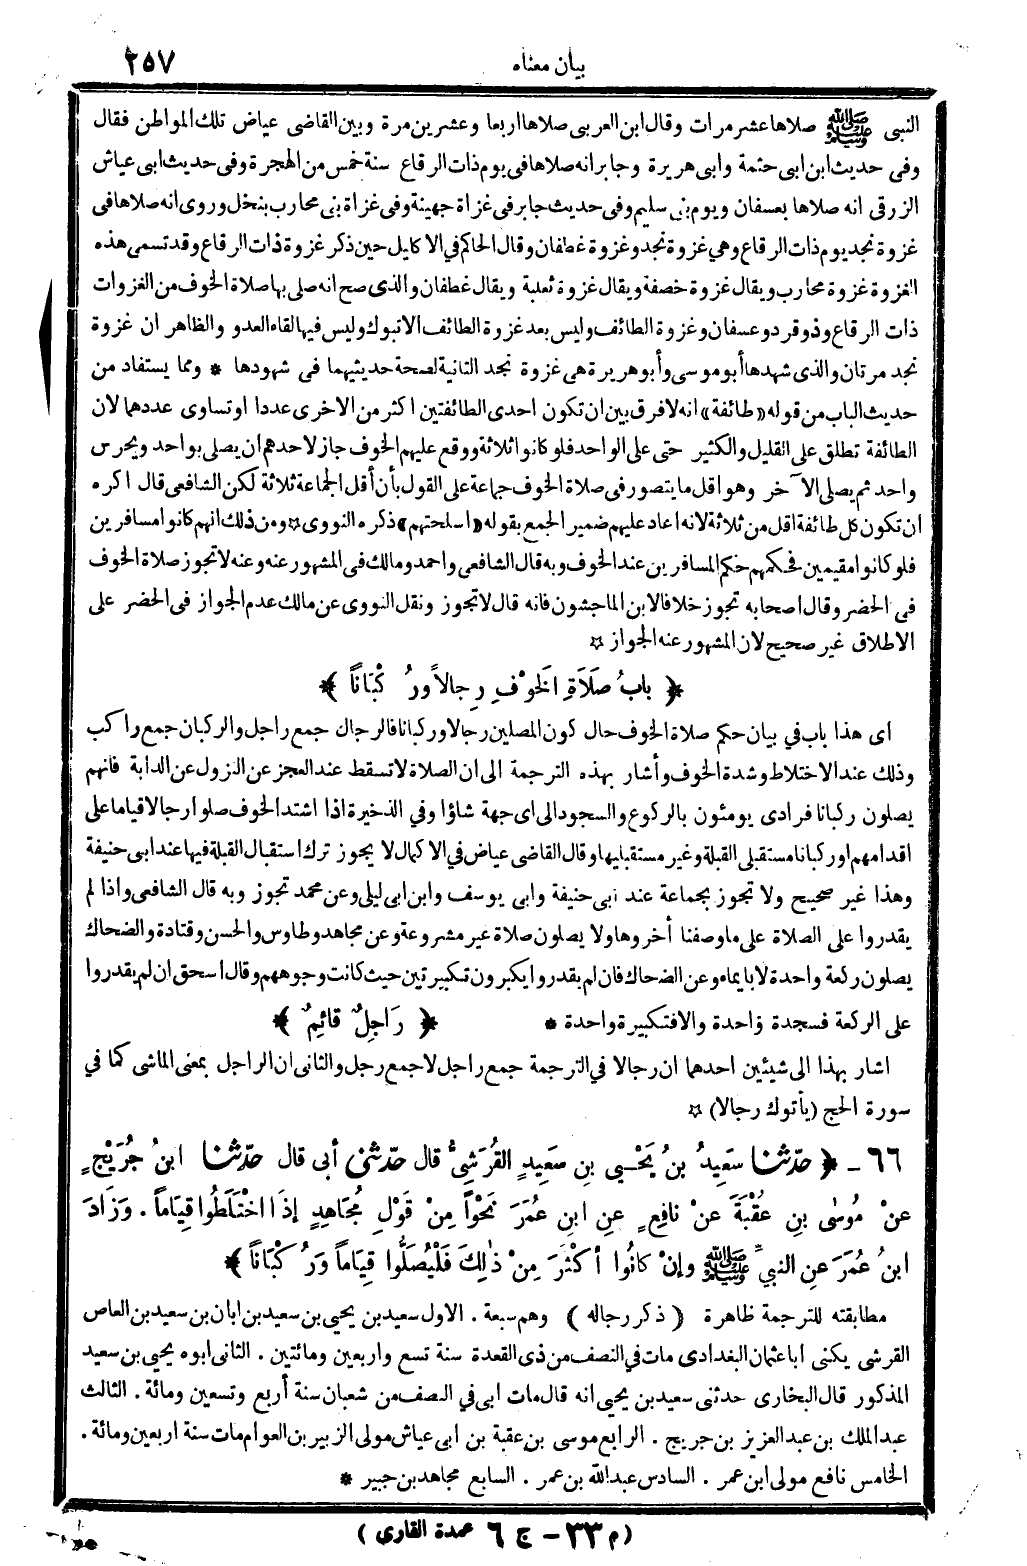 بيان معناه
٢٥٧
النبى ﷺ صلاها عشر مرات وقال ابن العربى صلاها اربعا وعشرين مرة وبين القاضى عياض تلك المواطن فقال
وفى حديث ابن ابى حثمة وابى هريرة وجابر انه صلاها فى يوم ذات الرقاع سنة خمس من الهجرة وفى حديث ابى عياش
الزرقى انه صلاها بعسفان ويوم بنى سليم وفى حديث جابر فى غزاة جهينة وفى غزاة بنى محارب بنخل وروى انه صلاها فى
غزوة نجد يوم ذات الرقاع وهي غزوة نجد وغزوة غطفان وقال الحاكم في الاكليل حين ذكر غزوة ذات الرقاع وقد تسمى هذه
الغزوة غزوة محارب ويقال غزوة خصفة ويقال غزوة ثعلبة ويقال غطفان والذى صح انه صلى بها صلاة الخوف من الغزوات
ذات الرقاع وذو قرد وعسفان وغزوة الطائف وليس بعد غزوة الطائف الاتبوك وليس فيها لقاء العدو والظاهر ان غزوة
نجد مرتان والذى شهدها أبو موسى وأبو هريرة هى غزوة نجد الثانية لصحة حديثيهما فى شهودها * ومما يستفاد من
حديث الباب من قوله «طائفة» انه لافرق بين ان تكون احدى الطائفتين اكثر من الاخرى عددا او تساوى عددهما لان
الطائفة تطلق على القليل والكثير حتى على الواحد فلو كانوا ثلاثة ووقع عليهم الخوف جاز لاحدهم ان يصلى بواحد ويحرس
واحد ثم يصلى الآخر وهو اقل ما يتصور فى صلاة الخوف جماعة على القول بأن أقل الجماعة ثلاثة لكن الشافعى قال اكره
ان تكون كل طائفة اقل من ثلاثة لانه اعاد عليهم ضمير الجمع بقوله «اسلحتهم» ذكره النووى ☆ ومن ذلك انهم كانوا مسافرين
فلو كانوا مقيمين فحكمهم حكم المسافرين عند الخوف وبه قال الشافعى واحمد ومالك فى المشهور عنه وعنه لا تجوز صلاة الخوف
فى الحضر وقال اصحابه تجوز خلافا لابن الماجشون فانه قال لا تجوز ونقل النووى عن مالك عدم الجواز فى الحضر على
الاطلاق غير صحيح لان المشهور عنه الجواز ☆
﴿ بابُ صَلَاةِ الخَوْفِ رِجالاً ورُكْبَاناً ﴾
اى هذا باب في بيان حكم صلاة الخوف حال كون المصلين رجالا وركبانا فالرجال جمع راجل والركبان جمع راكب
وذلك عند الاختلاط وشدة الخوف وأشار بهذه الترجمة الى ان الصلاة لا تسقط عند العجز عن النزول عن الدابة فانهم
يصلون ركبانا فرادى يومئون بالركوع والسجود الى اى جهة شاؤا وفي الذخيرة اذا اشتد الخوف صلوا رجالا قياما على
اقدامهم او ركبانا مستقبلى القبلة وغير مستقبليها وقال القاضى عياض في الاكمال لا يجوز ترك استقبال القبلة فيها عند ابى حنيفة
وهذا غير صحيح ولا تجوز بجماعة عند ابى حنيفة وابى يوسف وابن ابى ليلى وعن محمد تجوز وبه قال الشافعى واذا لم
يقدروا على الصلاة على ما وصفنا أخروها ولا يصلون صلاة غير مشروعة وعن مجاهد وطاوس والحسن وقتادة والضحاك
يصلون ركعة واحدة لا بايماء وعن الضحاك فان لم يقدروا يكبرون تكبيرتين حيث كانت وجوههم وقال اسحق ان لم يقدروا
على الركعة فسجدة واحدة والا فتكبيرة واحدة * ﴿ رَاجِلٌ قائِمٌ ﴾
اشار بهذا الى شيئين احدهما ان رجالا في الترجمة جمع راجل لا جمع رجل والثانى ان الراجل بمعنى الماشى كما في
سورة الحج (يأتوك رجالا) ☆
٦٦ - ﴿ حدّثنا سَعِيدُ بنُ يَحْيى بنِ سَعِيدٍ القُرَشِىُّ قال حدّثنى أبى قال حدّثنا ابنُ جُرَيْجٍ
عنْ مُوسٰى بنِ عُقْبَةَ عنْ نافِعٍ عنِ ابنِ عُمَرَ نَحْواً مِنْ قَوْلِ مُجَاهِدٍ إذَا اخْتَلَطُوا قِيَاماً . وَزَادَ
ابنُ عُمَرَ عنِ النبيِّ ﷺ وإنْ كانُوا أكْثَرَ مِنْ ذٰلِكَ فَلْيُصَلُّوا قِيَاماً ورُكْبَاناً ﴾
مطابقته للترجمة ظاهرة ( ذكر رجاله ) وهم سبعة . الاول سعيد بن يحيى بن سعيد بن ابان بن سعيد بن العاص
القرشى يكنى ابا عثمان البغدادى مات في النصف من ذى القعدة سنة تسع واربعين ومائتين . الثانى ابوه يحيى بن سعيد
المذكور قال البخارى حدثنى سعيد بن يحيى انه قال مات ابى في النصف من شعبان سنة أربع وتسعين ومائة . الثالث
عبد الملك بن عبد العزيز بن جريج . الرابع موسى بن عقبة بن ابى عياش مولى الزبير بن العوام مات سنة اربعين ومائة .
الخامس نافع مولى ابن عمر . السادس عبد الله بن عمر . السابع مجاهد بن جبير *
(م ٣٣ - ج ٦ عمدة القارى)